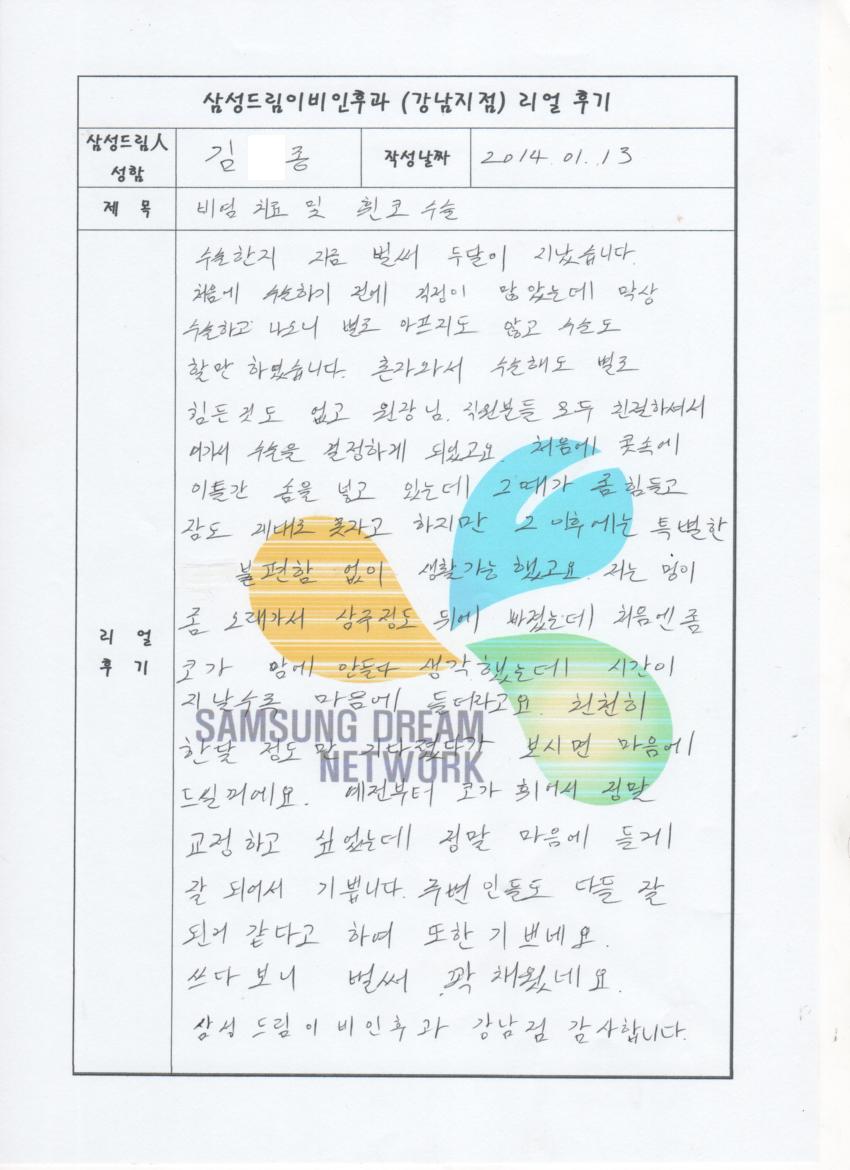 삼성드림이비인후과 (강남지점) 리얼 후기
삼성드림人 성함 김 종 작성날짜 2014.01.13
제 목 비염 치료 및 휜코 수술
리 얼 후 기
수술한지 지금 벌써 두달이 지났습니다.
처음에 수술하기 전에 걱정이 많았는데 막상
수술하고 나오니 별로 아프지도 않고 수술도
할만 하였습니다. 혼자와서 수술해도 별로
힘든것도 없고 원장님, 직원분들 모두 친절하셔서
여기서 수술을 결정하게 되었고요. 처음에 콧속에
이틀간 솜을 넣고 있는데 그때가 좀 힘들고
잠도 제대로 못자고 하지만 그 이후에는 특별한
불편함 없이 생활가능 했고요. 저는 멍이
좀 오래가서 삼주정도 뒤에 빠졌는데 처음엔 좀
코가 맘에 안들다 생각했는데 시간이
지날수록 마음에 들더라고요. 천천히
한달 정도만 기다렸다가 보시면 마음에
드실꺼에요. 예전부터 코가 휘어서 정말
교정하고 싶었는데 정말 마음에 들게
잘 되어서 기쁩니다. 주변인들도 다들 잘
된거 같다고 하여 또한 기쁘네요.
쓰다보니 벌써 꽉 채웠네요.
삼성드림이비인후과 강남점 감사합니다.
SAMSUNG DREAM
NETWORK